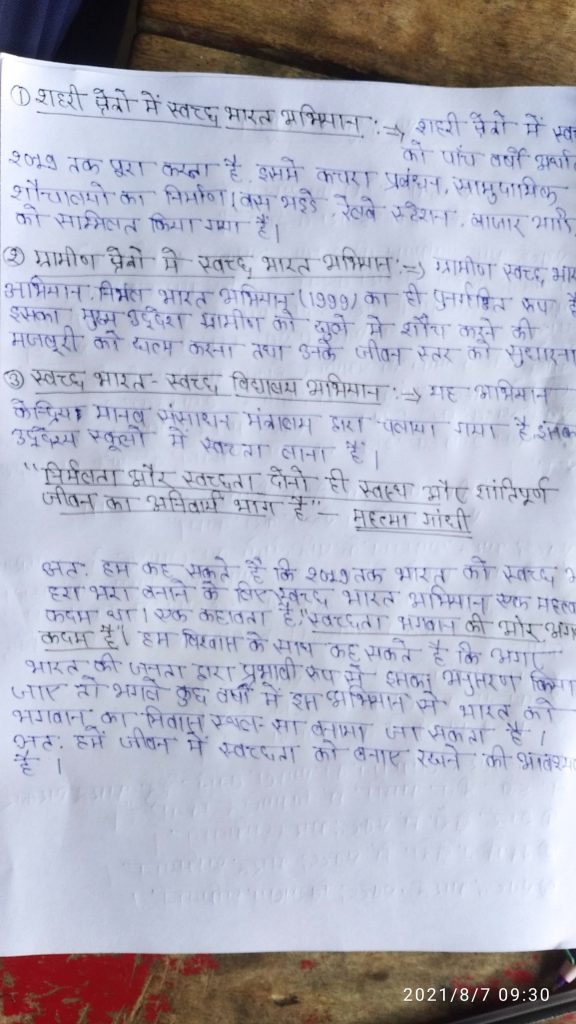 ① शहरी क्षेत्रो में स्वच्छ भारत अभियान :→ शहरी क्षेत्रों में
को पाँच वर्षों अर्थात
2019 तक पूरा करना है. इसमें कचरा प्रबंधन, सामुदायिक
शौचालयो का निर्माण (बस अड्डे, रेलवे स्टेशन, बाजार आदि
को सम्मिलित किया गया है।
② ग्रामीण क्षेत्रो मे स्वच्छ भारत अभियान :→ ग्रामीण स्वच्छ
अभियान, निर्मल भारत अभियान (1999) का ही पुनर्गठित रूप है
इसका मुख्य उद्देश्य ग्रामीण को खुले मे शौच करने की
मजबूरी को खत्म करना तथा उनके जीवन स्तर को सुधारना
③ स्वच्छ भारत - स्वच्छ विद्यालय अभियान :→ यह अभियान
केन्द्रिय मानव संसाधन मंत्रालय द्वारा चलाया गया है, इसका
उद्देश्य स्कूलों में स्वच्छता लाना है।
"निर्मलता और स्वच्छता दोनो ही स्वस्थ और शांतिपूर्ण
जीवन का अनिवार्य भाग है" - महात्मा गांधी
अतः हम कह सकते है कि 2019 तक भारत को स्वच्छ
हरा भरा बनाने के लिए स्वच्छ भारत अभियान एक
कदम था। एक कहावत है, "स्वच्छता भगवान की ओर
कदम है"। हम विश्वास के साथ कह सकते है कि अगर
भारत की जनता द्वारा प्रभावी रूप से इसका अनुसरण किया
जाए तो अगले कुछ वर्षों में इस अभियान से भारत को
भगवान का निवास स्थल-सा बनाया जा सकता है।
अतः हमें जीवन में स्वच्छता को बनाए रखने की
है।
2021/8/7 09:30